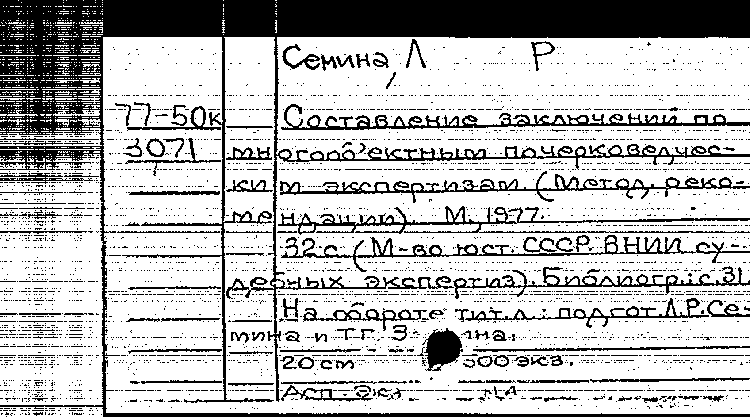 Семина, Л Р
77-50к Составление заключений по
3071 многооб'ектным почерковедчес-
ким экспертизам (Метод. реко-
мендации). М., 1977.
32 с. (М-во юст. СССР. ВНИИ су-
дебных экспертиз). Библиогр.: с. 31.
На обороте тит. л.: подгот. Л.Р. Се-
мина и Т.Г.
20 cm 500 экз.